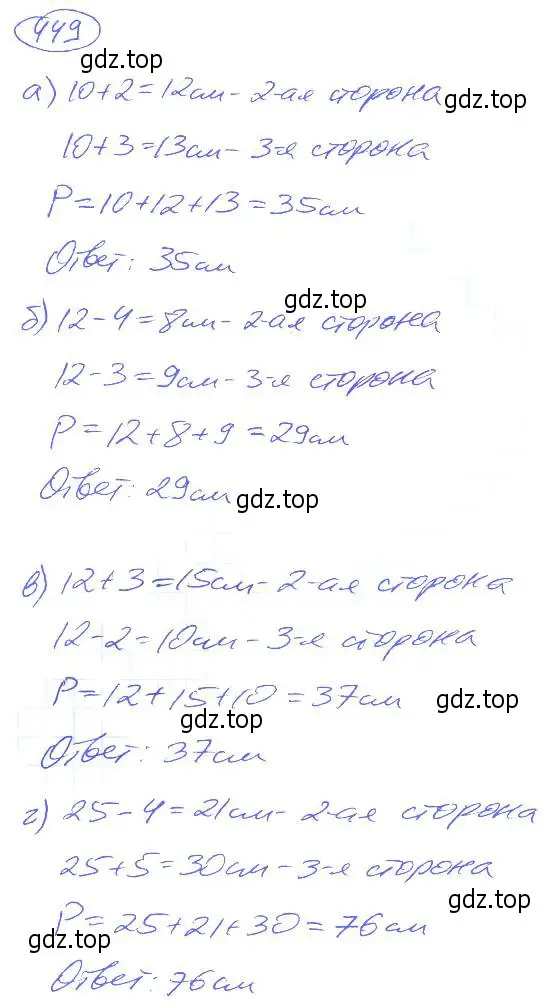 449
gdz.top
а) 10+2=12см- 2-ая сторона
gdz.top
10+3=13см- 3-я сторона
P=10+12+13=35см
Ответ: 35см
gdz.top
б) 12-4=8см- 2-ая сторона
12-3=9см-3-я сторона
P=12+8+9=29см
Ответ: 29см
gdz.top
в) 12+3=15см- 2-ая сторона
12-2=10см-3-я сторона
P=12+15+10=37см
gdz.top
gdz.top
Ответ: 37см
г) 25-4=21см- 2-ая сторона
25+5=30см-3-я сторона
gdz.top
P=25+21+30=76см
gdz.top
Ответ: 76см